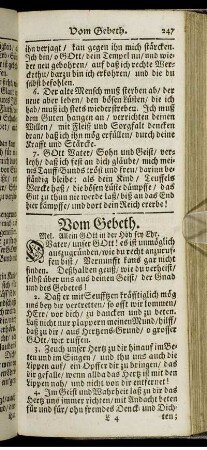 Vom Gebeth. 247
ihn verjagt / kan gegen ihn mich stärcken.
Ich den / o GOtt / ein Tempel nu / und wie-
der neu gebohren / auf daß ich rechte Wer-
cke thu / darzu bin ich erkohren / und die du
selbst befohlen.
6. Der alte Mensch muß sterben ab / der
neue aber leben / den bösen Lüsten / die ich
hab / muß ich stets wiederstreben. Ich muß
dem Guten hangen an / verrichten deinen
Willen / mit Fleiß und Sorgfalt dencken
dran / daß ich ihn mög erfüllen / durch deine
Krafft und Stärcke.
7. GOtt Vater / Sohn und Geist / ver-
leyh / daß ich fest an dich gläube / mich mei-
nes Tauff-Bunds tröst und freu / davon be-
ständig bleibe: als dein Kind / Teuffels
Werck haß / die bösen Lüste dämpffe / das
Gut zu thun nie werde laß / biß an das End
hier kämpffe / und dort dein Reich ererbe!
Vom Gebeth.
Mel. Allein GOtt in der Höh sey Ehr.
O Vater / unser GOtt! es ist unmöglich
auszugründen / wie du recht anzuruf-
fen bist / Vernunfft kans gar nicht
finden. Deßhalben geuß / wie du verheißt /
selbst über uns aus deinen Geist / der Gnad
und des Gebetes!
2. Daß er mit Seufftzen kräfftiglich mög
uns bey dir vertretten / so offt wir kommen /
HErr / vor dich / zu dancken und zu beten.
Laß nicht nur plappern meinen Mund / hilff /
daß zu dir / aus Hertzens-Grund / o grosser
GOtt / wir ruffen.
3. Zeuch unser Hertz zu dir hinauf im Be-
ten und im Singen / und thu uns auch die
Lippen auf / ein Opffer dir zu bringen / das
dir gefalle / wenn allda das Hertz ist mit den
Lippen nah / und nicht von dir entfernet!
4. Im Geist und Wahrheit laß zu dir das
Hertz uns immer richten / mit Andacht beten
für und für / ohn fremdes Denck- und Dich-
L 4 ten;